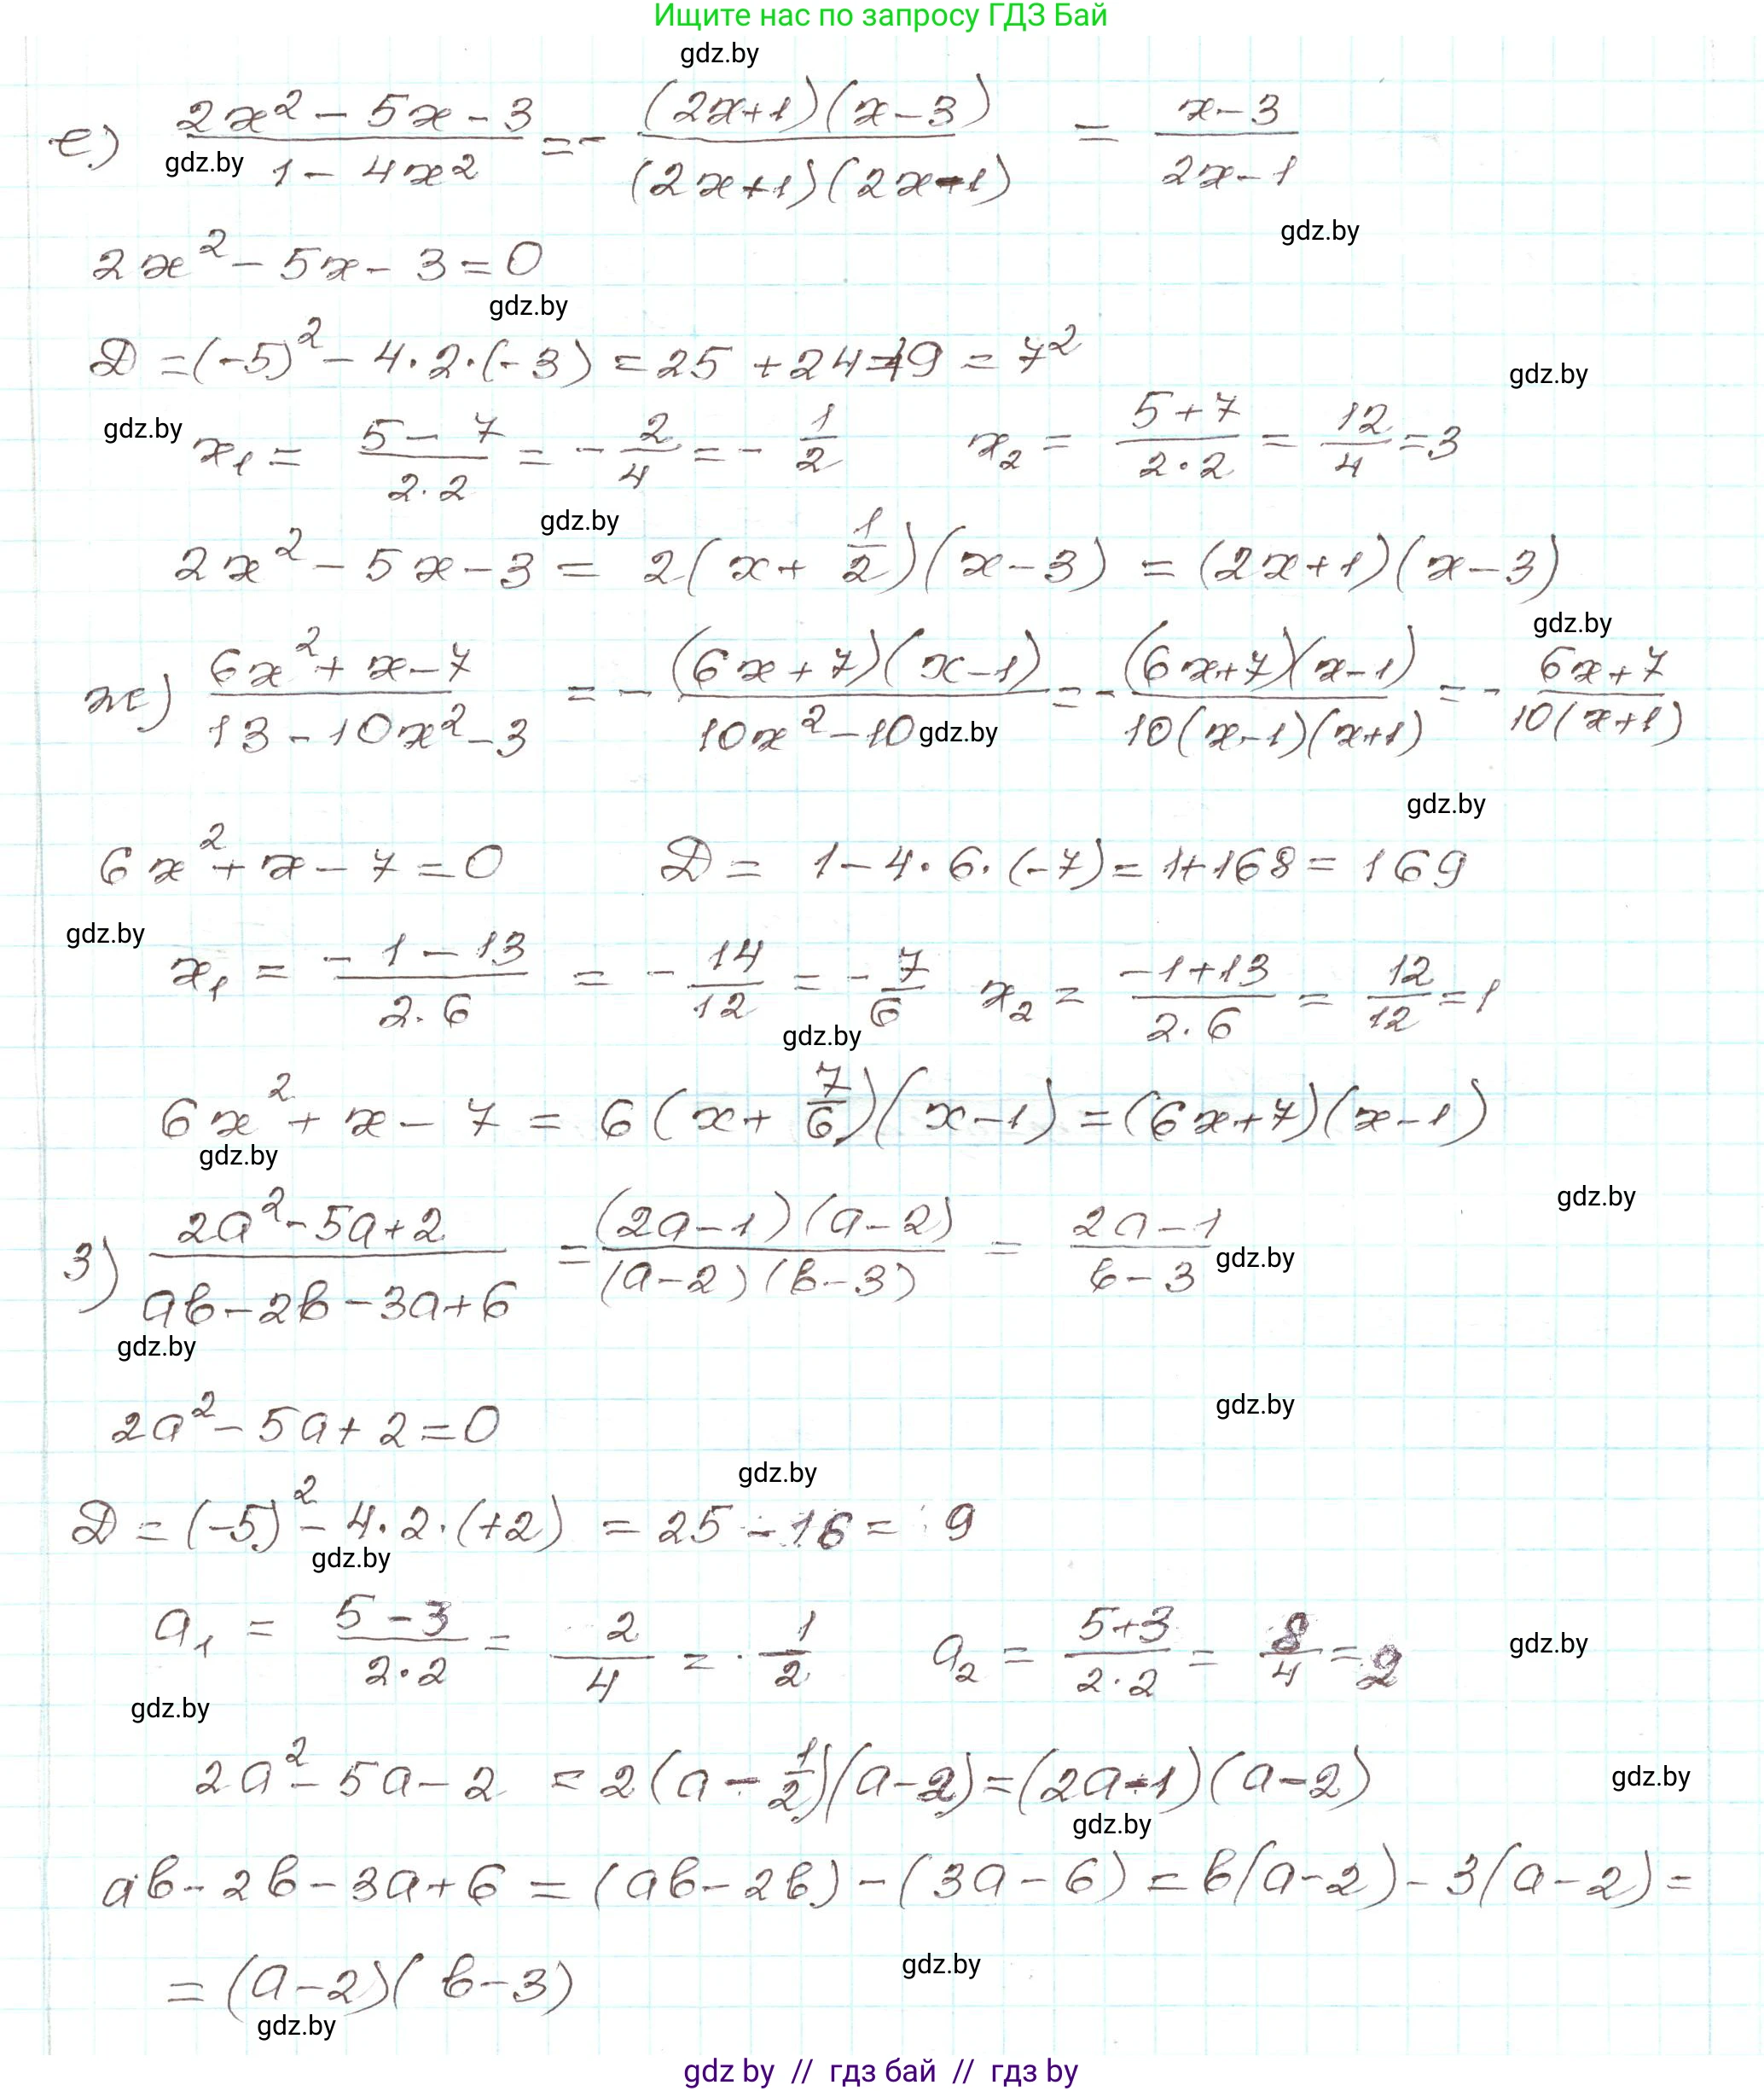 Ищите нас по запросу ГДЗ Бай
gdz.by
е) (2x² - 5x - 3)/(1 - 4x²) = - ((2x+1)(x-3))/((2x+1)(2x-1)) = (x-3)/(2x-1)
gdz.by
gdz.by
2x² - 5x - 3 = 0
gdz.by
D = (-5)² - 4·2·(-3) = 25 + 24 = 49 = 7²
gdz.by
gdz.by
x₁ = (5 - 7)/(2·2) = - 2/4 = - 1/2 x₂ = (5+7)/(2·2) = 12/4 = 3
gdz.by
2x² - 5x - 3 = 2(x + 1/2)(x - 3) = (2x+1)(x-3)
gdz.by
ж) (6x² + x - 7)/(13 - 10x² - 3) = - ((6x+7)(x-1))/(10x² - 10) = - ((6x+7)(x-1))/(10(x-1)(x+1)) = - (6x+7)/(10(x+1))
gdz.by
gdz.by
6x² + x - 7 = 0 D = 1 - 4·6·(-7) = 1+168 = 169
gdz.by
x₁ = (-1 - 13)/(2·6) = - 14/12 = - 7/6 x₂ = (-1+13)/(2·6) = 12/12 = 1
gdz.by
6x² + x - 7 = 6(x + 7/6)(x-1) = (6x+7)(x-1)
gdz.by
gdz.by
з) (2a² - 5a + 2)/(ab - 2b - 3a + 6) = ((2a-1)(a-2))/((a-2)(b-3)) = (2a-1)/(b-3)
gdz.by
gdz.by
gdz.by
2a² - 5a + 2 = 0
gdz.by
D = (-5)² - 4·2·(+2) = 25 - 16 = 9
gdz.by
a₁ = (5-3)/(2·2) = 2/4 = 1/2 a₂ = (5+3)/(2·2) = 8/4 = 2
gdz.by
gdz.by
2a² - 5a - 2 = 2(a - 1/2)(a-2) = (2a-1)(a-2)
gdz.by
gdz.by
ab - 2b - 3a + 6 = (ab - 2b) - (3a - 6) = b(a-2) - 3(a-2) =
= (a-2)(b-3)
gdz.by
gdz.by
gdz by // гдз бай // гдз by